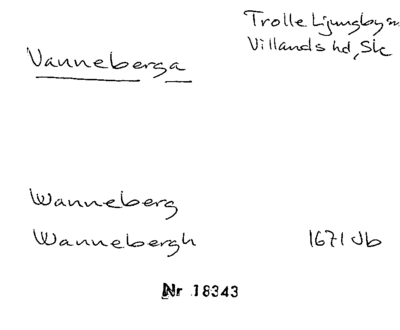 Trolle Ljungby sn
Villands hd, Sk
Vanneberga
Wanneberg
Wannebergh 1671 Jb
Nr 18343